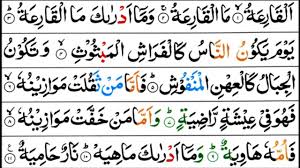 اَلْقَارِعَةُ ۙ مَا الْقَارِعَةُ ۚ وَمَاۤ اَدْرٰىكَ مَا الْقَارِعَةُ ؕ
يَوْمَ يَكُوْنُ النَّاسُ كَالْفَرَاشِ الْمَبْثُوْثِ ۙ وَتَكُوْنُ
الْجِبَالُ كَالْعِهْنِ الْمَنْفُوْشِ ؕ فَاَمَّا مَنْ ثَقُلَتْ مَوَازِيْنُهٗ ۙ
فَهُوَ فِيْ عِيْشَةٍ رَّاضِيَةٍ ؕ وَاَمَّا مَنْ خَفَّتْ مَوَازِيْنُهٗ ۙ
فَاُمُّهٗ هَاوِيَةٌ ؕ وَمَاۤ اَدْرٰىكَ مَاهِيَهْ ؕ نَارٌ حَامِيَةٌ